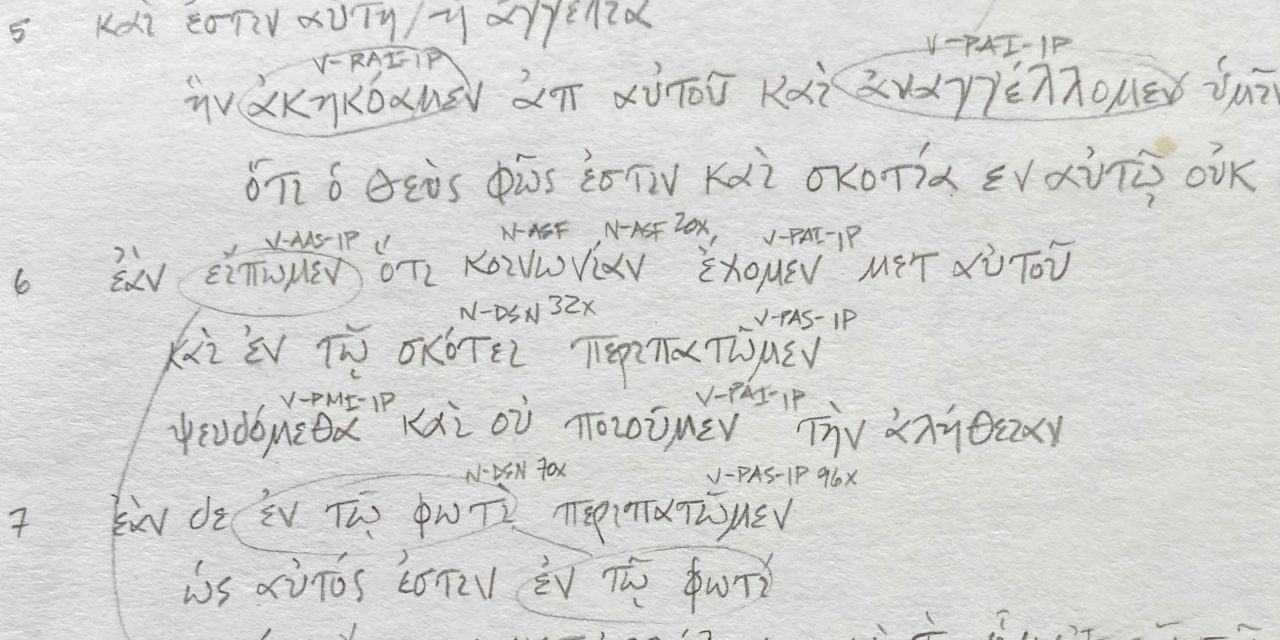 5 καὶ ἐστιν αὑτη / ἡ ἀγγελία
V-RAI-1P V-PAI-1P
ἣν ἀκηκόαμεν ἀπ αὐτοῦ καὶ ἀναγγέλλομεν ὑμῖν
ὅτι ὁ θεὸς φῶς ἐστιν καὶ σκοτία εν αὐτῷ οὐκ
V-AAS-1P N-ASF N-ASF 20x, V-PAI-1P
6 ἐὰν εἴπωμεν ὅτι κοινωνίαν ἔχομεν μετ αὐτοῦ
N-DSN 32x V-PAS-1P
καὶ ἐν τῷ σκότει περιπατῶμεν
V-PMI-1P V-PAI-1P
ψευδόμεθα καὶ οὐ ποιοῦμεν τὴν ἀλήθειαν
N-DSN 70x V-PAS-1P 96x
7 ἐὰν δε ἐν τῷ φωτὶ περιπατῶμεν
ὡς αὐτός ἐστιν ἐν τῷ φωτί